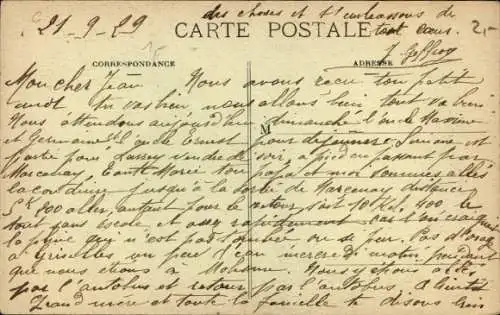 21-9-29
des choses et t'embrassons de
CARTE POSTALE tout cœur. 2,-
J. Geffroy
CORRESPONDANCE ADRESSE
Mon cher Jean. Nous avons reçu ton petit
mot tu vas bien nous allons bien tout va bien
Nous attendons aujourd'hui dimanche l'oncle Maxime
et Germaine l'oncle Ernest pour déjeuner
parti pour vendre de soir, à pied en passant par
Marcenay, ton papa et moi sommes allés
la conduire jusqu'à la sortie de Marcenay distance
5K 200 aller, autant pour le retour soit 10 Kil. 400 le
tout sans escale et assez rapidement car l'on craignait
la pluie qui n'est pas tombée ou si peu. Pas d'orage
à un peu d'eau mercredi matin pendant
que nous étions à Nous y étions allés
par l'autobus et retour par l'autobus
Grand mère et toute la famille te disons bien